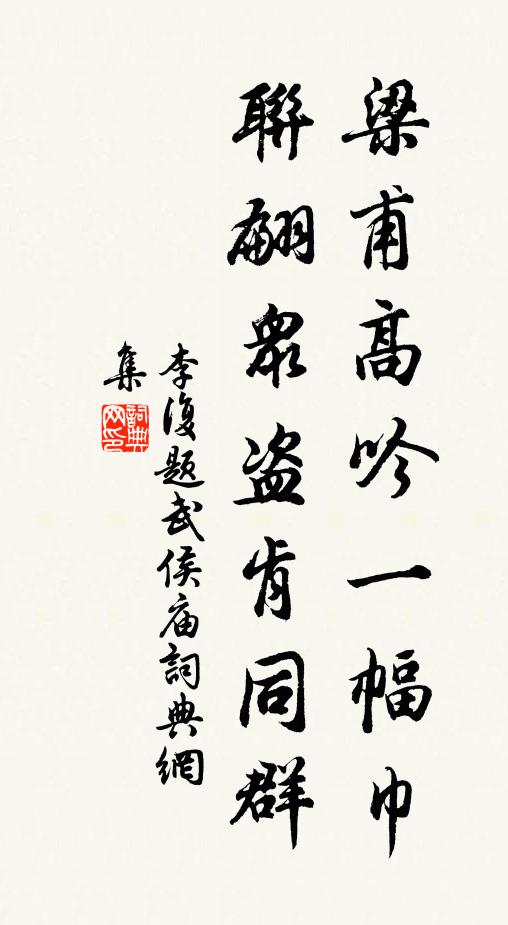 梁甫高吟一幅巾
聯翩眾盜肯同群
李復题武侯庙詞典網
集
詞典
网印